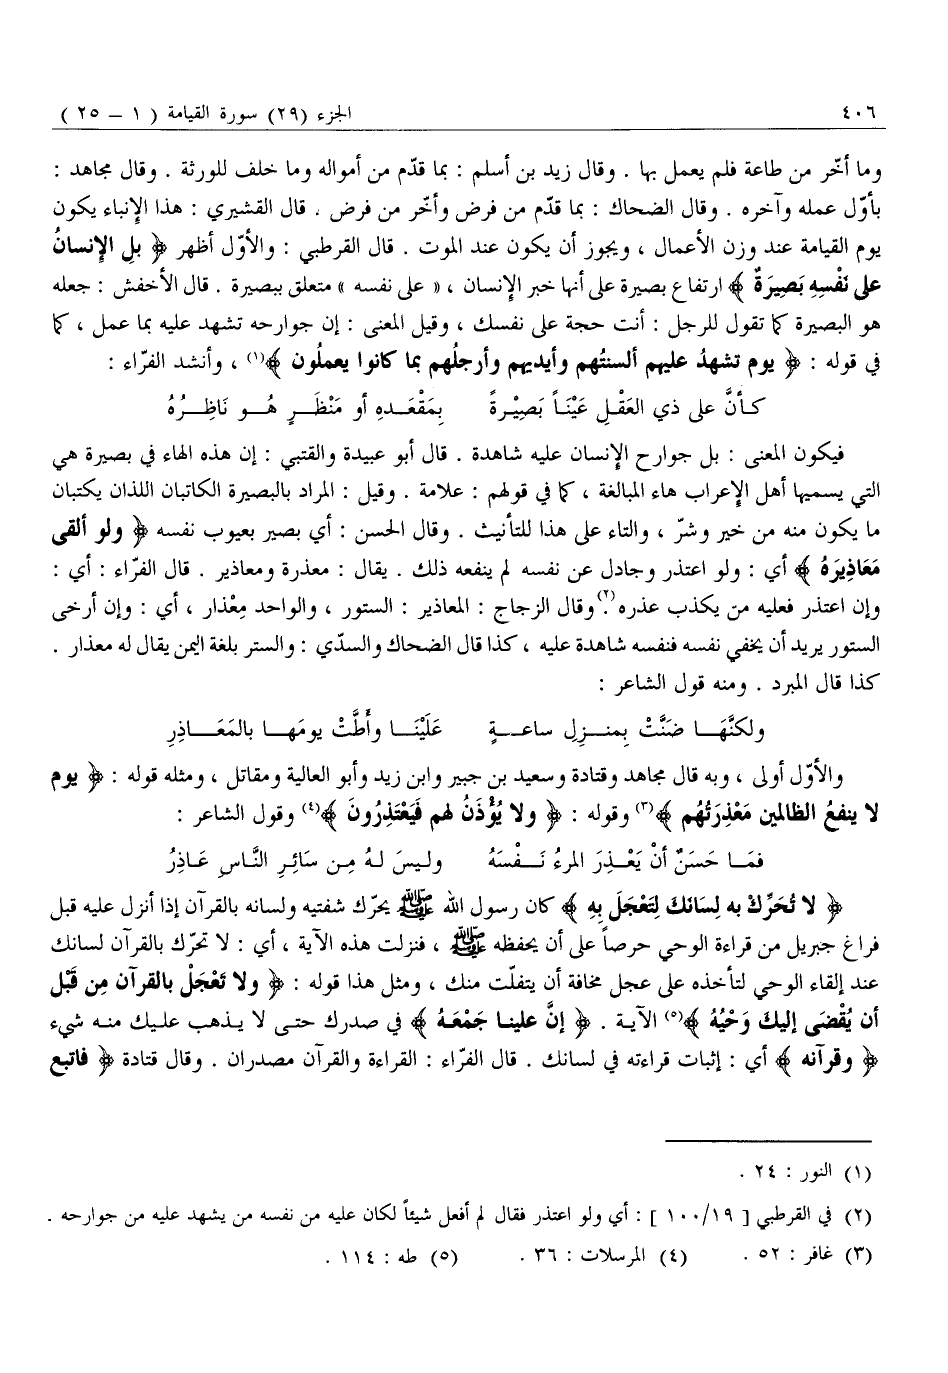 ٤٠٦ الجزء (٢٩) سورة القيامة ( ١ – ٢٥ )
وما أخّر من طاعة فلم يعمل بها . وقال زيد بن أسلم : بما قدّم من أمواله وما خلف للورثة . وقال مجاهد :
بأوّل عمله وآخره . وقال الضحاك : بما قدّم من فرض وأخّر من فرض . قال القشيري : هذا الإنباء يكون
يوم القيامة عند وزن الأعمال ، ويجوز أن يكون عند الموت . قال القرطبي : والأوّل أظهر ﴿ بلِ الإنسانُ
على نَفْسِهِ بَصِيرَةٌ ﴾ ارتفاع بصيرة على أنها خبر الإنسان ، « على نفسه » متعلق ببصيرة . قال الأخفش : جعله
هو البصيرة كما تقول للرجل : أنت حجة على نفسك ، وقيل المعنى : إن جوارحه تشهد عليه بما عمل ، كما
في قوله : ﴿ يوم تشهدُ عليهم ألسنتُهم وأيديهم وأرجلُهم بما كانوا يعملُون ﴾(١) ، وأنشد الفرّاء :
كـأنَّ على ذي العَقْـلِ عَيْنَـاً بَصِيْـرةً بِمَقْعَـدِهِ أو مَنْظَـرٍ هُـو نَاظِـرُهُ
فيكون المعنى : بل جوارح الإنسان عليه شاهدة . قال أبو عبيدة والقتبي : إن هذه الهاء في بصيرة هي
التي يسميها أهل الإعراب هاء المبالغة ، كما في قولهم : علامة . وقيل : المراد بالبصيرة الكاتبان اللذان يكتبان
ما يكون منه من خير وشرّ ، والتاء على هذا للتأنيث . وقال الحسن : أي بصير بعيوب نفسه ﴿ ولو ألقى
مَعَاذِيرَهُ ﴾ أي : ولو اعتذر وجادل عن نفسه لم ينفعه ذلك . يقال : معذرة ومعاذير . قال الفرّاء : أي :
وإن اعتذر فعليه من يكذب عذره.(٢) وقال الزجاج : المعاذير : الستور ، والواحد مِعْذار ، أي : وإن أرخى
الستور يريد أن يخفي نفسه فنفسه شاهدة عليه ، كذا قال الضحاك والسدّي : والستر بلغة اليمن يقال له معذار .
كذا قال المبرد . ومنه قول الشاعر :
ولكنَّهَـا ضَنَّتْ بِمنـزِلِ ساعـةٍ عَلَيْنَـا وأَطَّتْ يومَهـا بالمَعَـاذِرِ
والأوّل أولى ، وبه قال مجاهد وقتادة وسعيد بن جبير وابن زيد وأبو العالية ومقاتل ، ومثله قوله : ﴿ يوم
لا ينفعُ الظالمين مَعْذِرَتُهُم ﴾(٣) وقوله : ﴿ ولا يُؤْذَنُ لهم فَيَعْتَذِرُونَ ﴾(٤) وقول الشاعر :
فمَـا حَسَنٌ أنْ يَعْـذِرَ المرءُ نَـفْسَهُ وليـسَ لـهُ مِـن سَائِـرِ النَّـاسِ عَـاذِرُ
﴿ لا تُحَرِّكْ به لِسَانَكَ لِتَعْجَلَ بِهِ ﴾ كان رسول الله ﷺ يحرّك شفتيه ولسانه بالقرآن إذا أنزل عليه قبل
فراغ جبريل من قراءة الوحي حرصاً على أن يحفظه ﷺ ، فنزلت هذه الآية ، أي : لا تحرّك بالقرآن لسانك
عند إلقاء الوحي لتأخذه على عجل مخافة أن يتفلّت منك ، ومثل هذا قوله : ﴿ ولا تَعْجَلْ بالقرآن مِن قَبْل
أن يُقْضَى إليكَ وَحْيُهُ ﴾(٥) الآية . ﴿ إنَّ علينـا جَمْعَـهُ ﴾ في صدرك حتـى لا يـذهب عليك منـه شيء
﴿ وقرآنه ﴾ أي : إثبات قراءته في لسانك . قال الفرّاء : القراءة والقرآن مصدران . وقال قتادة ﴿ فاتبع
(١) النور : ٢٤ .
(٢) في القرطبي [ ١٠٠/١٩ ] : أي ولو اعتذر فقال لم أفعل شيئاً لكان عليه من نفسه من يشهد عليه من جوارحه .
(٣) غافر : ٥٢ . (٤) المرسلات : ٣٦ . (٥) طه : ١١٤ .